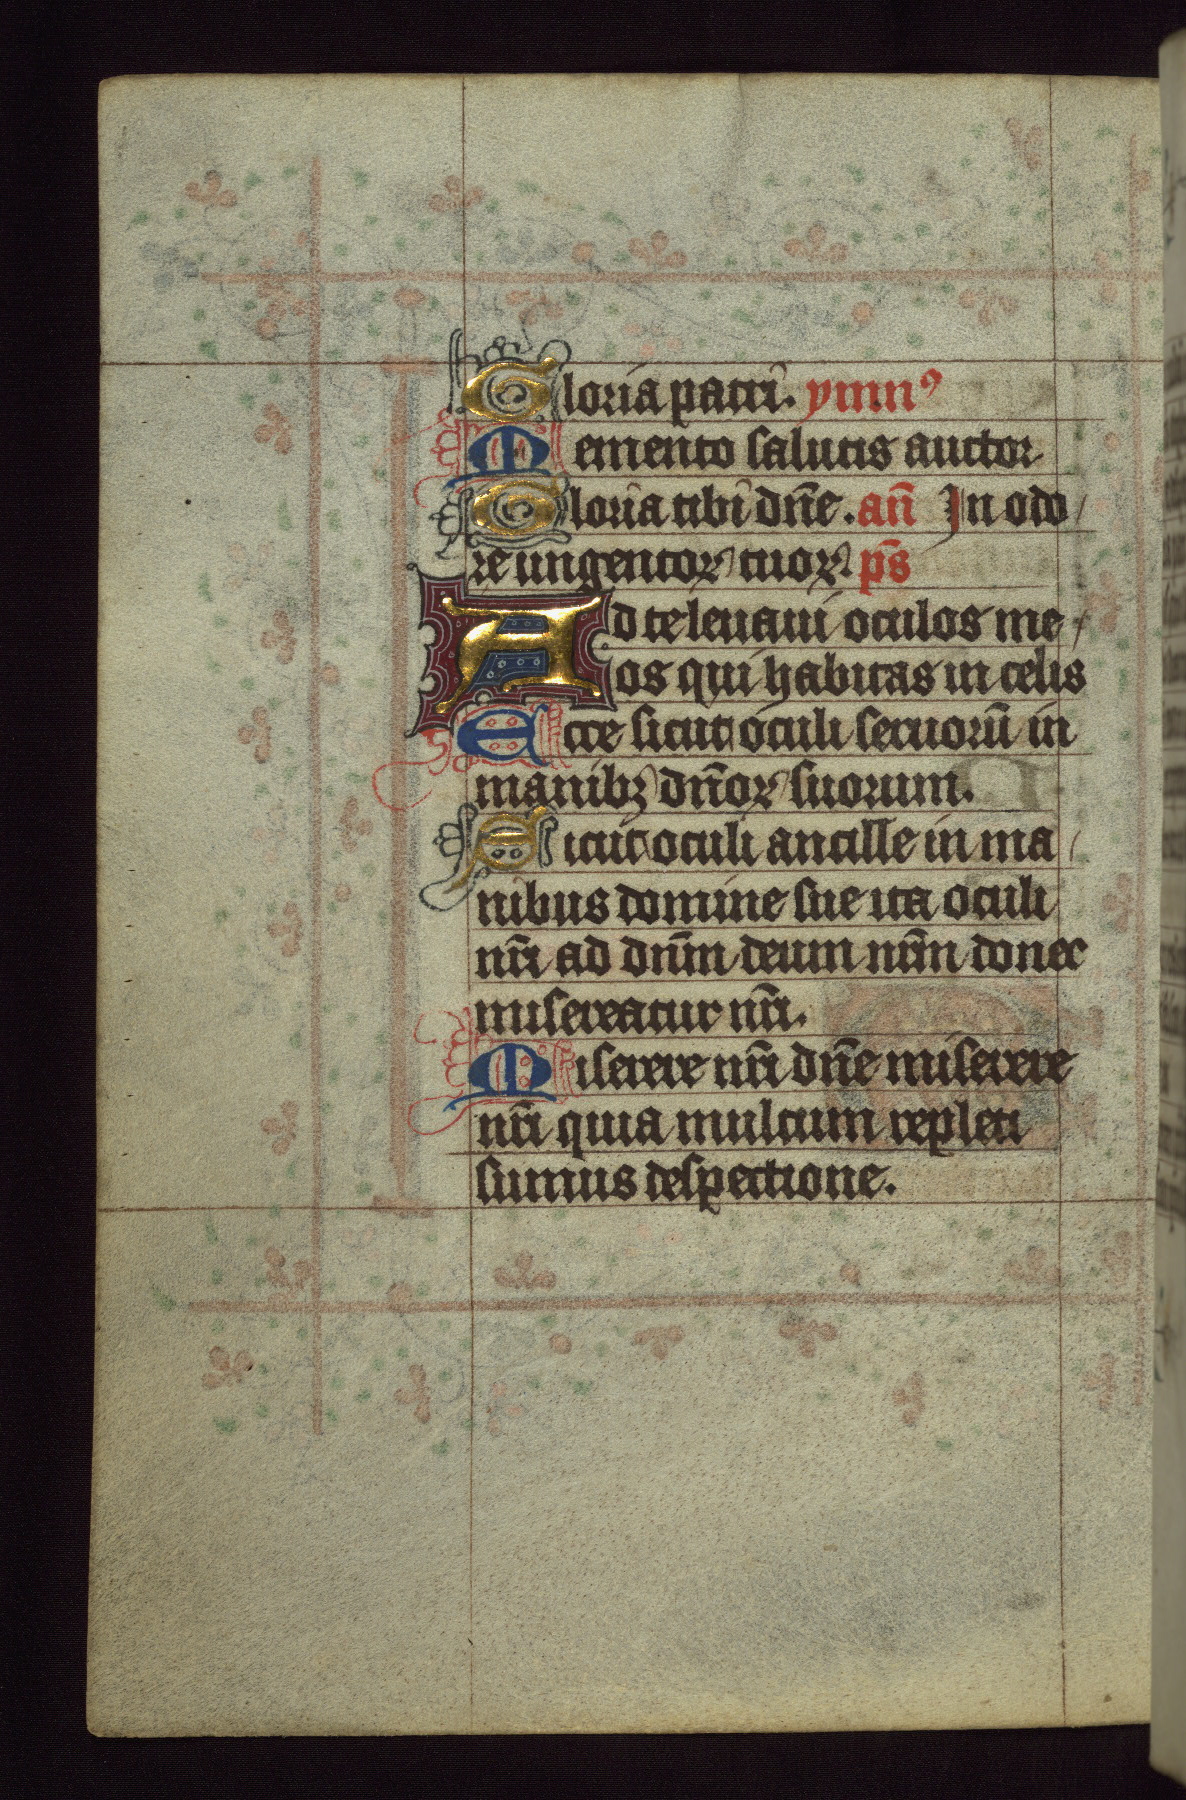 Gloria patri. ymnꝰ
Memento salutis auctor
Gloria tibi dn̄e. an̄ In odo
re ungentoꝝ tuoꝝ. ps̄
Ad te leuaui oculos me
os qui habitas in celis
Ecce sicut oculi seruorū in
manibꝫ dn̄oꝝ suorum.
Sicut oculi ancille in ma
nibus domine sue ita oculi
nr̄i ad dnm̄ deum nrm̄ donec
misereatur nr̄i.
Miserere nr̄i dn̄e miserere
nr̄i quia multum repleti
sumus despectione.